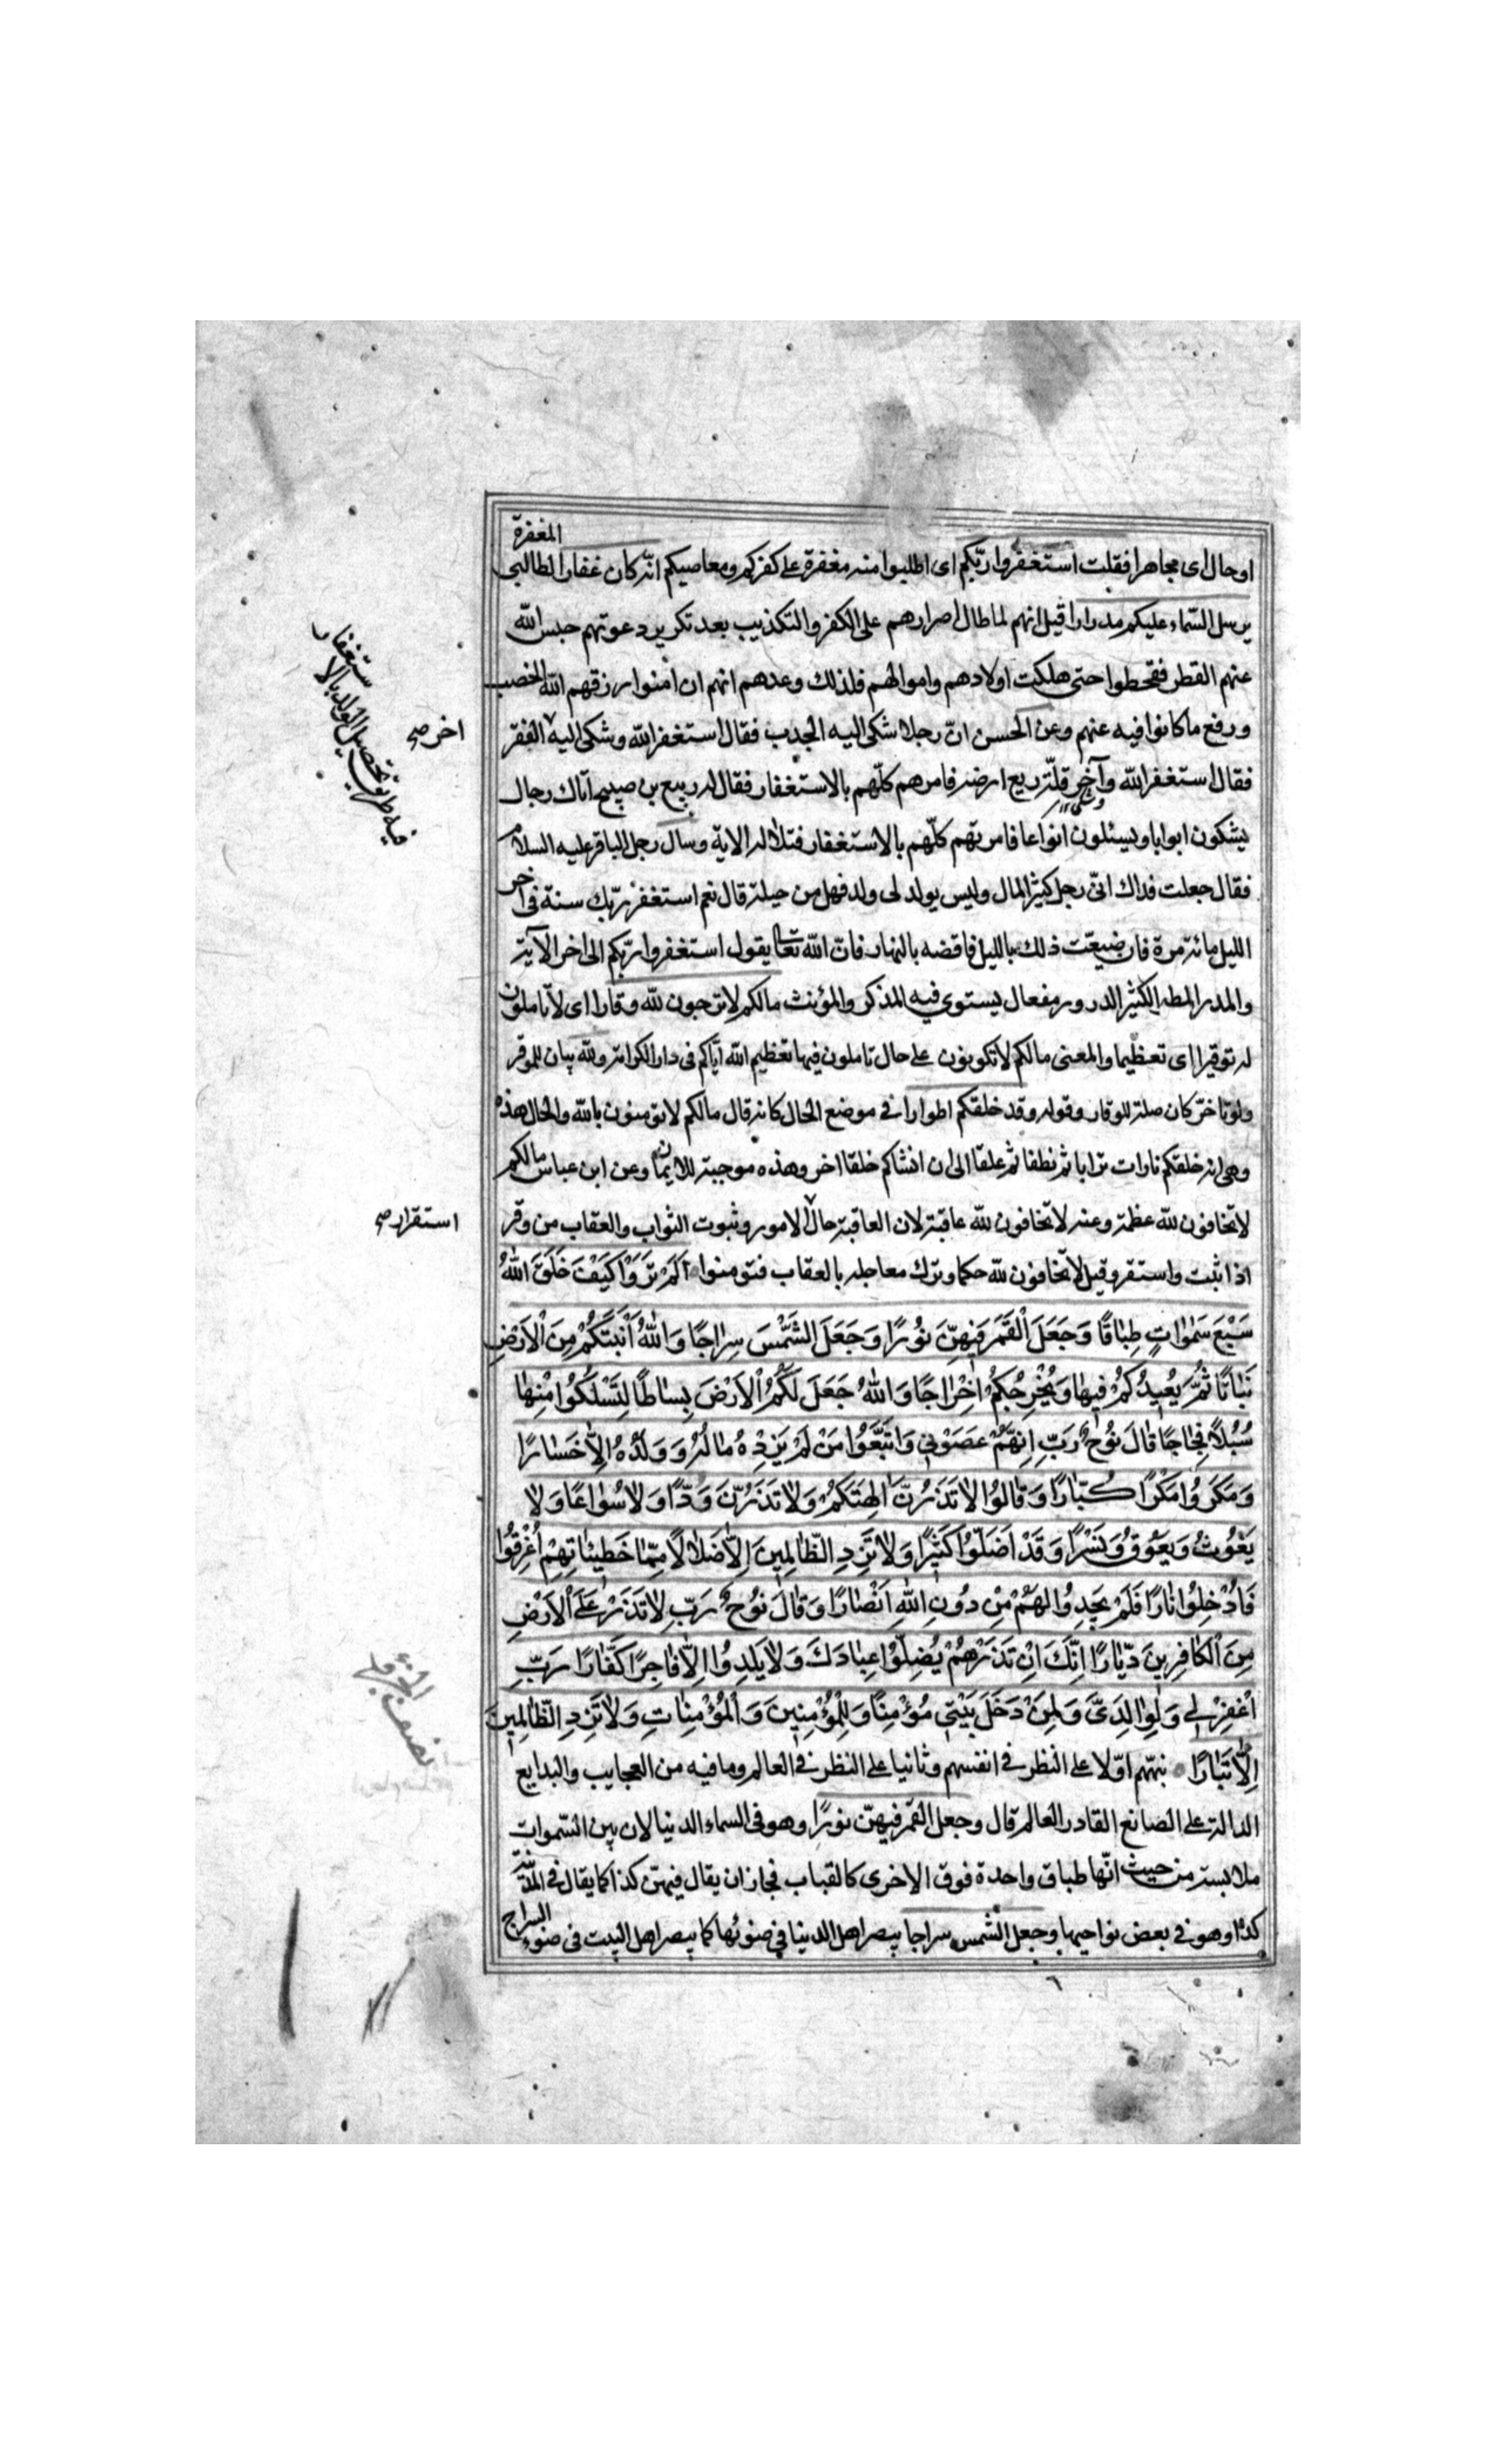 المغفرة
او حال اى مجاهرا فقلت استغفروا ربّكم اى اطلبوا منه مغفرة على كفركم ومعاصيكم انّه كان غفارا لطالبى
يرسل السّماء عليكم مدرارا قيل انهم لما طال اصرارهم على الكفر والتكذيب بعد تكرير دعوتهم حبس الله
عنهم القطر فقحطوا حتى هلكت اولادهم واموالهم فلذلك وعدهم انهم ان امنوا رزقهم الله الخصب
ورفع ما كانوا فيه عنهم وعن الحسن انّ رجلا شكى اليه الجدب فقال استغفر الله وشكى اليه الفقر
اخر صح
فقال استغفر الله وآخر قلّة ريع ارضه فامرهم كلّهم بالاستغفار فقال له ربيع بن صبيح اتاك رجال
يشكون ابوابا ويسئلون انواعا فامرتهم كلّهم بالاستغفار فتلا له الاية وسال رجل الباقر عليه السلام
فقال جعلت فداك انّى رجل كثير المال وليس يولد لى ولد فهل من حيلة قال نعم استغفر ربّك سنة فى اخر
الليل مائة مرة فان ضيعّت ذلك بالليل فاقضه بالنهار فانّ الله تعا يقول استغفروا ربّكم الى اخر الآية
والمدرار المطر الكثير الدرور ومفعال يستوى فيه المذكر والمؤنث مالكم لا ترجون لله وقارا اى لا تاملون
له توقيرا اى تعظيما والمعنى مالكم لا تكونون على حال تاملون فيها تعظيم الله ايّاكم فى دار الكرامة ولله بيان للموقر
ولو تاخّر كان صلة للوقار وقوله وقد خلقكم اطوارا فى موضع الحال كانه قال مالكم لا تومنون بالله والحال هذه
وهى انه خلقكم تارات ترابا ثم نطفا ثم علقا الى ان انشاكم خلقا اخر وهذه موجبة للايمان وعن ابن عباس مالكم
لا تخافون لله عظمة وعنه لا تخافون لله عاقبة لان العاقبة حال الامور وثبوت الثواب والعقاب من وقر
استقرار صح
اذا ثبت واستقر وقيل لا تخافون لله حكما وترك معاجله بالعقاب فتومنوا اَلَمْ تَرَوْا كَيْفَ خَلَقَ اللهُ
سَبْعَ سَمٰوٰاتٍ طِبٰاقًا وَجَعَلَ الْقَمَرَ فِيهِنَّ نُورًا وَجَعَلَ الشَّمْسَ سِرٰاجًا وَاللهُ اَنْبَتَكُمْ مِنَ الْاَرْضِ
نَبٰاتًا ثُمَّ يُعِيدُكُمْ فِيهٰا وَيُخْرِجُكُمْ اِخْرٰاجًا وَاللهُ جَعَلَ لَكُمُ الْاَرْضَ بِسٰاطًا لِتَسْلُكُوا مِنْهٰا
سُبُلاً فِجٰاجًا قٰالَ نُوحٌ رَبِّ اِنَّهُمْ عَصَوْنِى وَاتَّبَعُوا مَنْ لَمْ يَزِدْهُ مٰالُهُ وَوَلَدُهُ اِلاّٰ خَسٰارًا
وَمَكَرُوا مَكْرًا كُبّٰارًا وَقٰالُوا لاٰ تَذَرُنَّ اٰلِهَتَكُمْ وَلاٰ تَذَرُنَّ وَدًّا وَلاٰ سُوٰاعًا وَلاٰ
يَغُوثَ وَيَعُوقَ وَنَسْرًا وَقَدْ اَضَلُّوا كَثِيرًا وَلاٰ تَزِدِ الظّٰالِمِينَ اِلاّٰ ضَلاٰلاً مِمّٰا خَطِيئٰاتِهِمْ اُغْرِقُوا
فَاُدْخِلُوا نٰارًا فَلَمْ يَجِدُوا لَهُمْ مِنْ دُونِ اللهِ اَنْصٰارًا وَقٰالَ نُوحٌ رَبِّ لاٰ تَذَرْ عَلَى الْاَرْضِ
مِنَ الْكٰافِرِينَ دَيّٰارًا اِنَّكَ اِنْ تَذَرْهُمْ يُضِلُّوا عِبٰادَكَ وَلاٰ يَلِدُوا اِلاّٰ فٰاجِرًا كَفّٰارًا رَبِّ
اغْفِرْ لِى وَلِوٰالِدَىَّ وَلِمَنْ دَخَلَ بَيْتِى مُؤْمِنًا وَلِلْمُؤْمِنِينَ وَالْمُؤْمِنٰاتِ وَلاٰ تَزِدِ الظّٰالِمِينَ
اِلاّٰ تَبٰارًا نبّههم اوّلا على النظر فى انفسهم وثانيا على النظر فى العالم وما فيه من العجايب والبدايع
الدالة على الصانع القادر العالم قال وجعل القمر فيهنّ نورًا وهو فى السماء الدنيا لان بين السّموات
ملابسة من حيث انّها طباق واحدة فوق الاخرى كالقباب فجاز ان يقال فيهنّ كذا كما يقال فى المدينة
كذا وهو فى بعض نواحيها وجعل الشمس سراجا يبصر اهل الدنيا فى ضوئها كما يبصر اهل البيت فى ضوء السراج
فيه طريق تحصيل الولد بالاستغفار